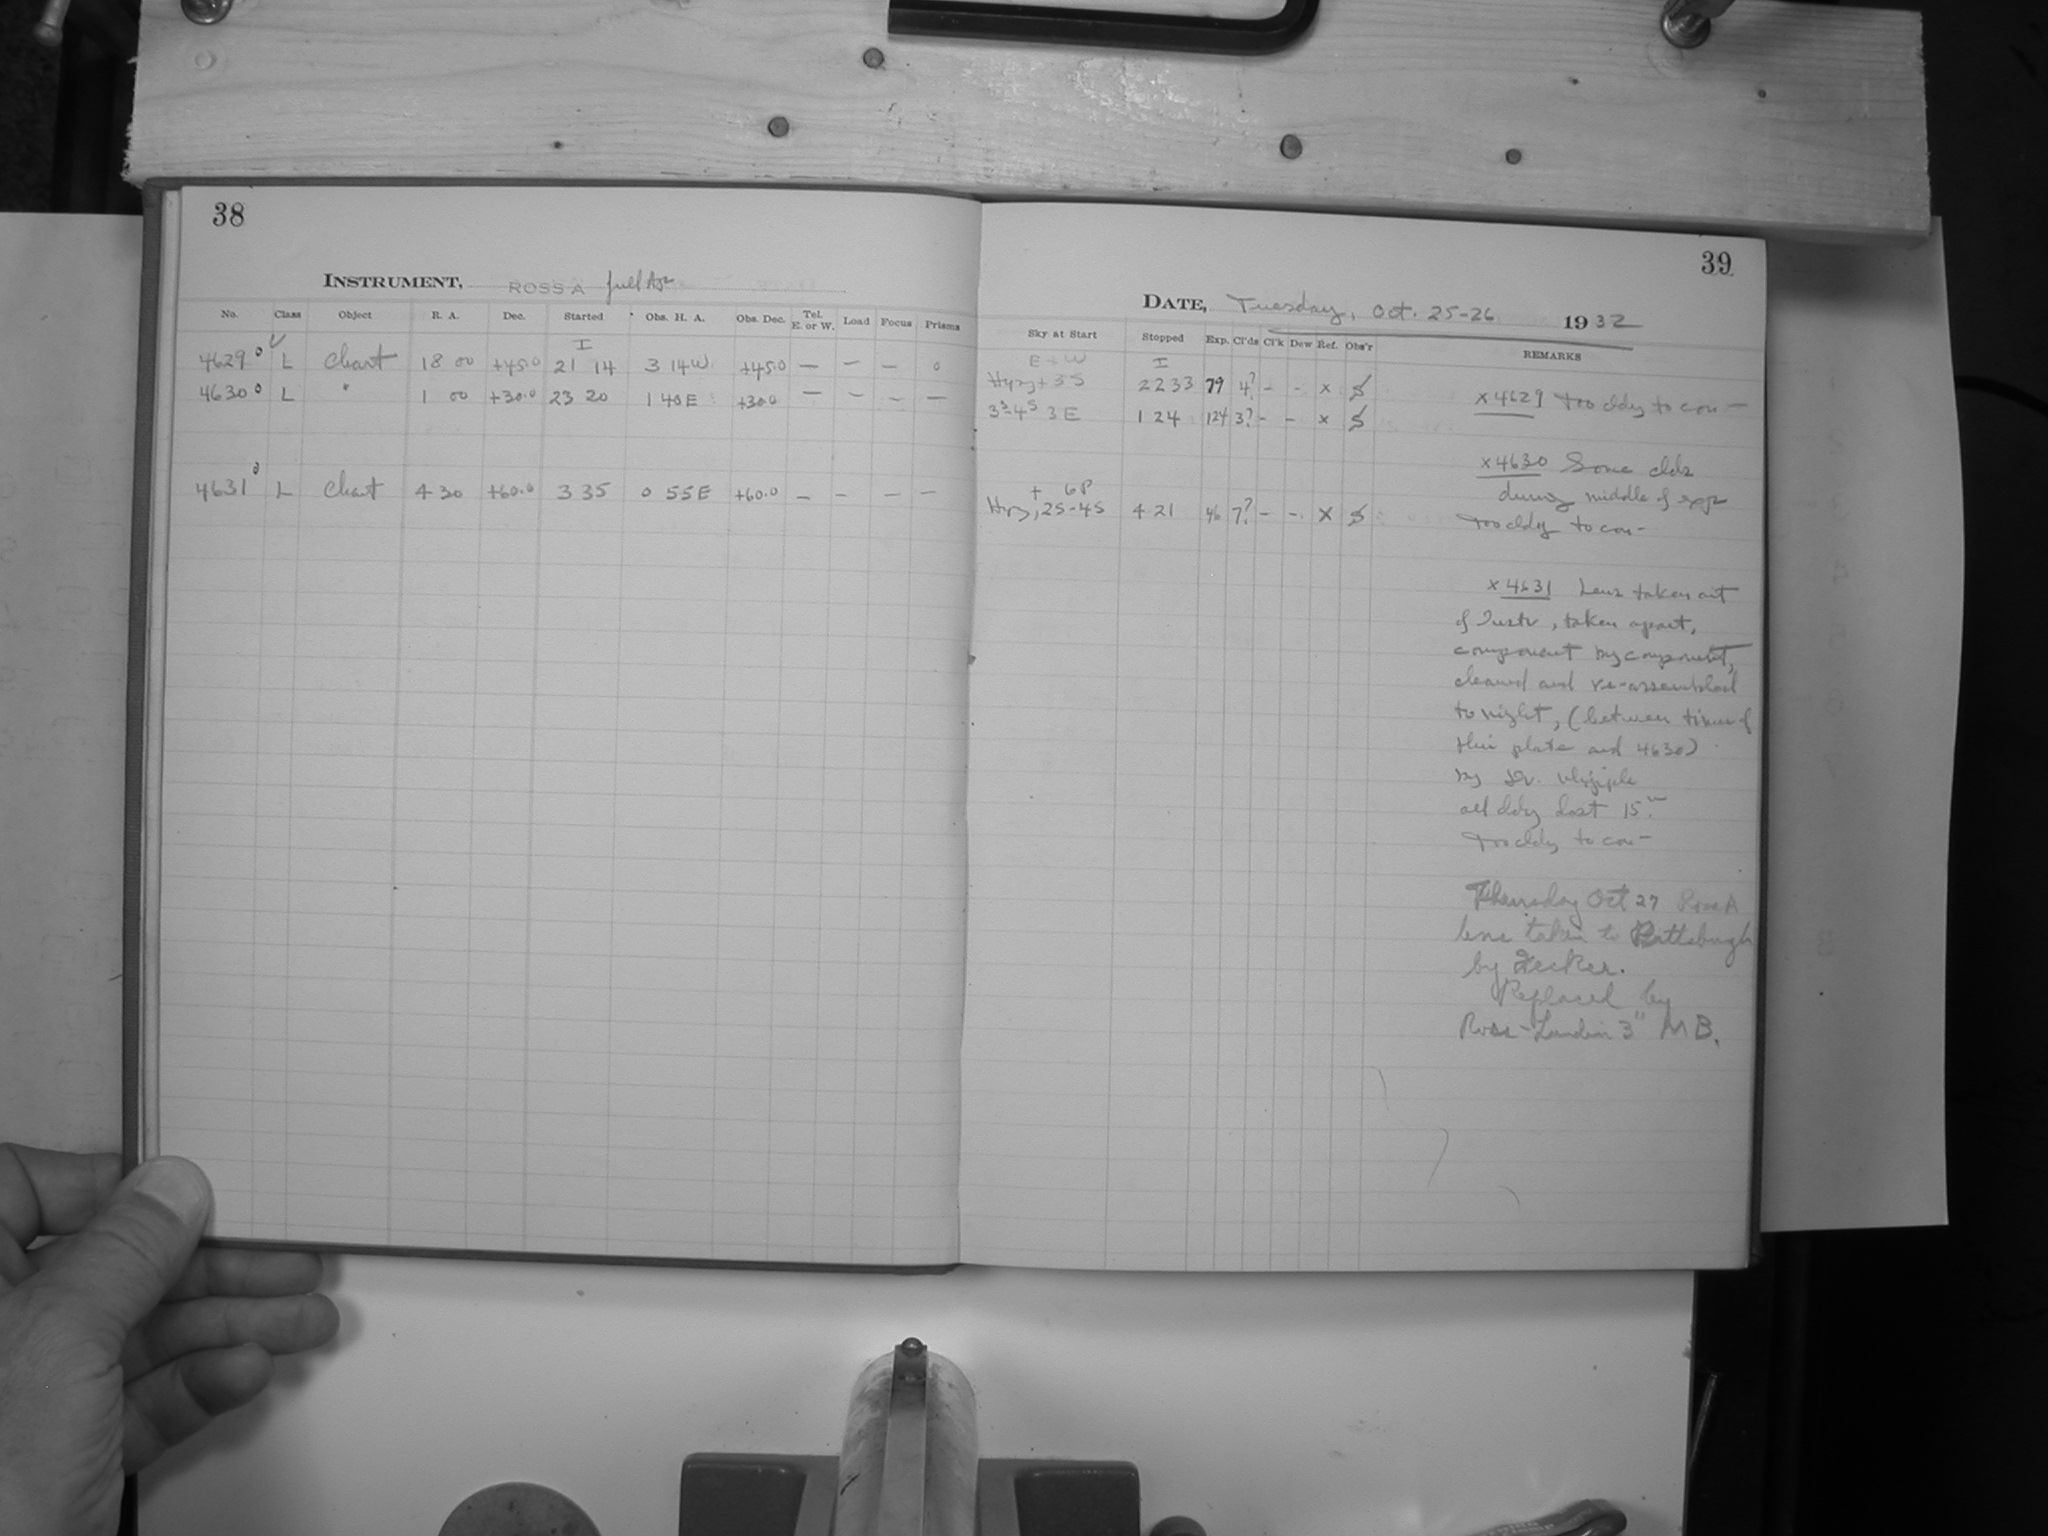 38
INSTRUMENT, ROSS A full Apr
No. Class Object R. A. Dec. Started Obs. H. A. Obs. Dec. Tel. E. or W. Load Focus Prisms
I
4629 L Chart 18 00 +45.0 21 14 3 14W +45.0 — — — o
4630 L " 1 00 +30.0 23 20 1 40 E +30.0 — — — —
4631 L Chart 4 30 +60.0 3 35 0 55E +60.0 — — — —
39
DATE, Tuesday, Oct. 25-26 1932
Sky at Start Stopped Exp. Cl'ds Cl'k Dew Ref. Obs'r REMARKS
E + W I
Hyzy + 3S 22 33 79 4? - - x
3E 1 24 124 3? - - x
+ 6P
Hzy, 2S-4S 4 21 46 7? - - x
x 4629 Too cldy to con—
x 4630 Some clds
during middle of exp
Too cldy to con—
x 4631 Lens taken out
of Instr, taken apart,
component by component,
cleaned and re-assembled
to night, (between time of
this plate and 4630)
by Dr. Whipple
all cldy last 15m.
Too cldy to con—
Thursday Oct 27 Ross A
lens taken to Pittsburgh
by Fecker.
Replaced by
Ross-Lundin 3" MB.